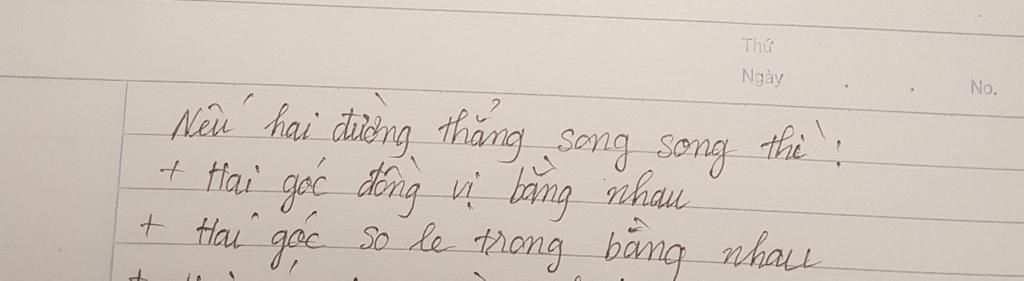 Thứ
Ngày . . No.
Nếu hai đường thẳng song song thì:
+ Hai góc đồng vị bằng nhau
+ Hai góc so le trong bằng nhau